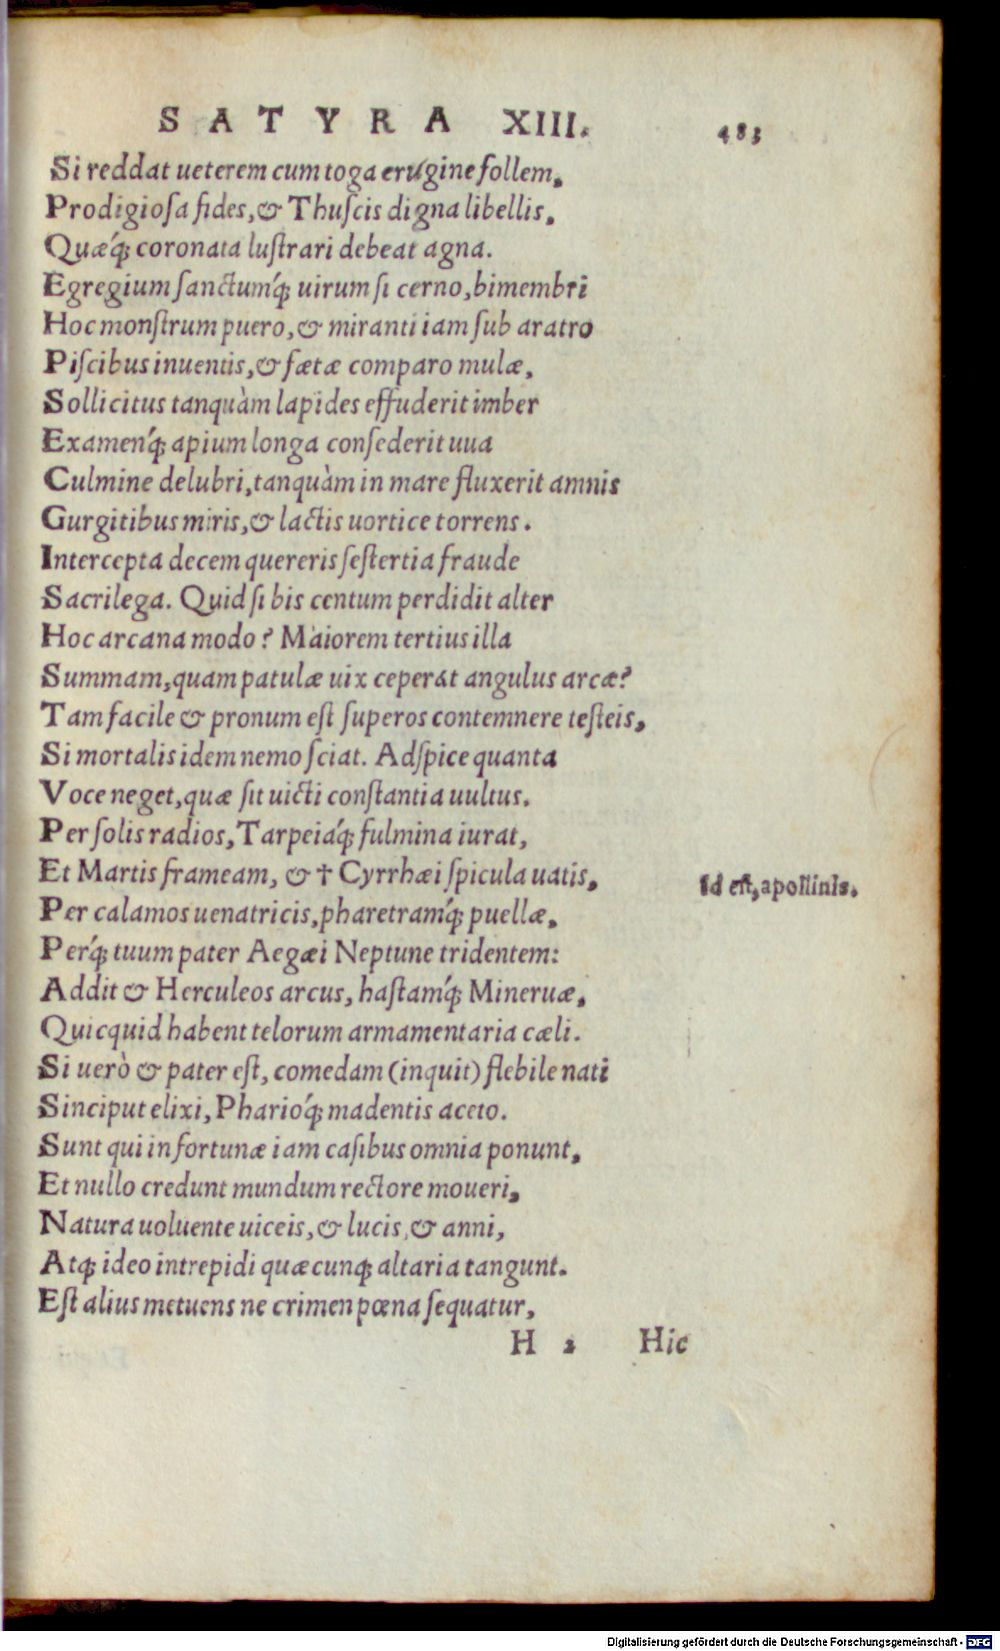 SATYRA XIII. 483
Si reddat ueterem cum toga erugine follem,
Prodigiosa fides, & Thuscis digna libellis,
Quæq́; coronata lustrari debeat agna.
Egregium sanctumq́; uirum si cerno, bimembri
Hoc monstrum puero, & miranti iam sub aratro
Piscibus inuentis, & fætæ comparo mulæ,
Sollicitus tanquàm lapides effuderit imber
Examenq́; apium longa consederit uua
Culmine delubri, tanquàm in mare fluxerit amnis
Gurgitibus miris, & lactis uortice torrens.
Intercepta decem quereris sestertia fraude
Sacrilega. Quid si bis centum perdidit alter
Hoc arcana modo? Maiorem tertius illa
Summam, quam patulæ uix ceperat angulus arcæ?
Tam facile & pronum est superos contemnere testeis,
Si mortalis idem nemo sciat. Adspice quanta
Voce neget, quæ sit uicti constantia uultus.
Per solis radios, Tarpeiaq́; fulmina iurat,
Et Martis frameam, & † Cyrrhæi spicula uatis,
Id est, apollinis.
Per calamos uenatricis, pharetramq́; puellæ,
Perq́; tuum pater Aegæi Neptune tridentem:
Addit & Herculeos arcus, hastamq́; Mineruæ,
Quicquid habent telorum armamentaria cæli.
Si uerò & pater est, comedam (inquit) flebile nati
Sinciput elixi, Pharioq́; madentis aceto.
Sunt qui in fortunæ iam casibus omnia ponunt,
Et nullo credunt mundum rectore moueri,
Natura uoluente uiceis, & lucis, & anni,
Atq; ideo intrepidi quæcunq; altaria tangunt.
Est alius metuens ne crimen pœna sequatur,
H 2 Hic
Digitalisierung gefördert durch die Deutsche Forschungsgemeinschaft - DFG